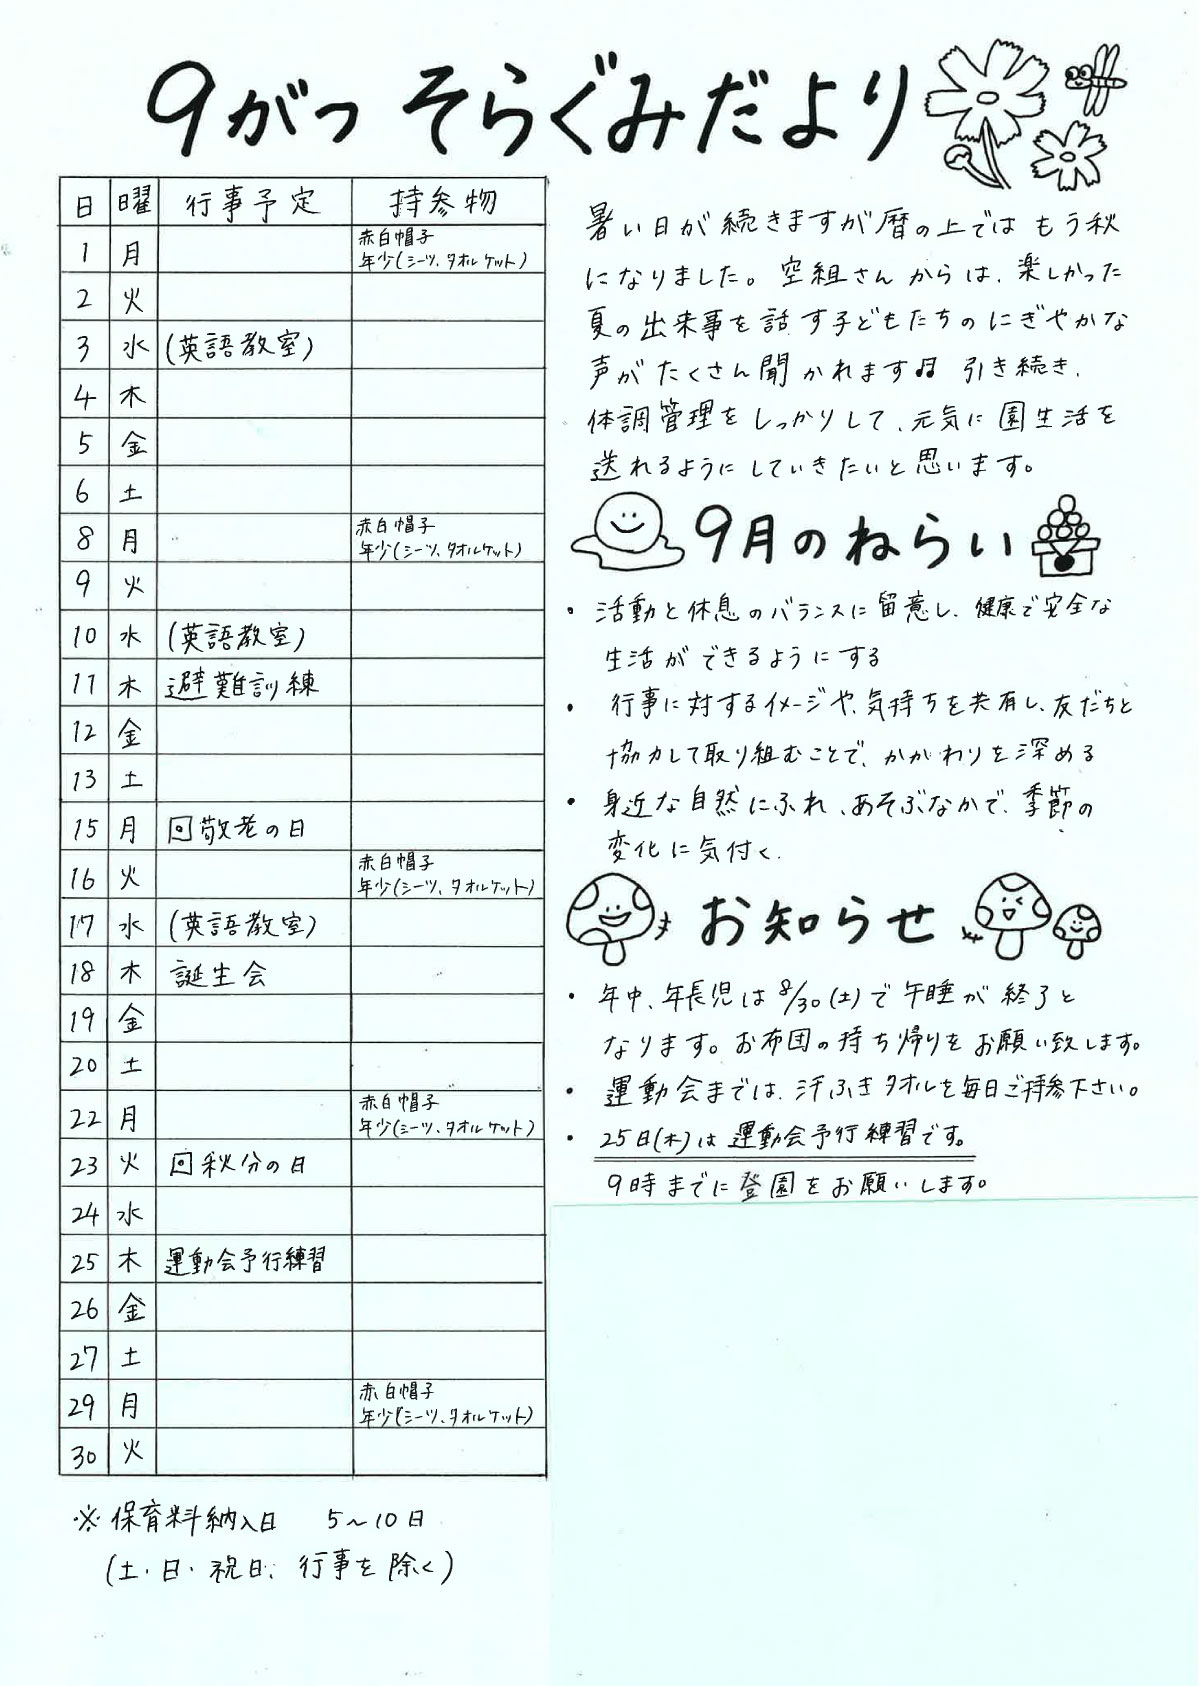 9がつ そらぐみだより
日 曜 行事予定 持参物
1 月 赤白帽子
年少(シーツ、タオルケット)
2 火
3 水 (英語教室)
4 木
5 金
6 土
8 月 赤白帽子
年少(シーツ、タオルケット)
9 火
10 水 (英語教室)
11 木 避難訓練
12 金
13 土
15 月 回敬老の日
16 火 赤白帽子
年少(シーツ、タオルケット)
17 水 (英語教室)
18 木 誕生会
19 金
20 土
22 月 赤白帽子
年少(シーツ、タオルケット)
23 火 回秋分の日
24 水
25 木 運動会予行練習
26 金
27 土
29 月 赤白帽子
年少(シーツ、タオルケット)
30 火
※保育料納入日 5~10日
(土・日・祝日、行事を除く)
暑い日が続きますが暦の上ではもう秋
になりました。空組さんからは、楽しかった
夏の出来事を話す子どもたちのにぎやかな
声がたくさん聞かれます♫ 引き続き、
体調管理をしっかりして、元気に園生活を
送れるようにしていきたいと思います。
9月のねらい
・活動と休息のバランスに留意し、健康で安全な
生活ができるようにする
・行事に対するイメージや、気持ちを共有し、友だちと
協力して取り組むことで、かかわりを深める
・身近な自然にふれ、あそぶなかで、季節の
変化に気付く。
お知らせ
・年中、年長児は8/30(土)で午睡が終了と
なります。お布団の持ち帰りをお願い致します。
・運動会までは、汗ふきタオルを毎日ご持参下さい。
・25日(木)は運動会予行練習です。
9時までに登園をお願いします。